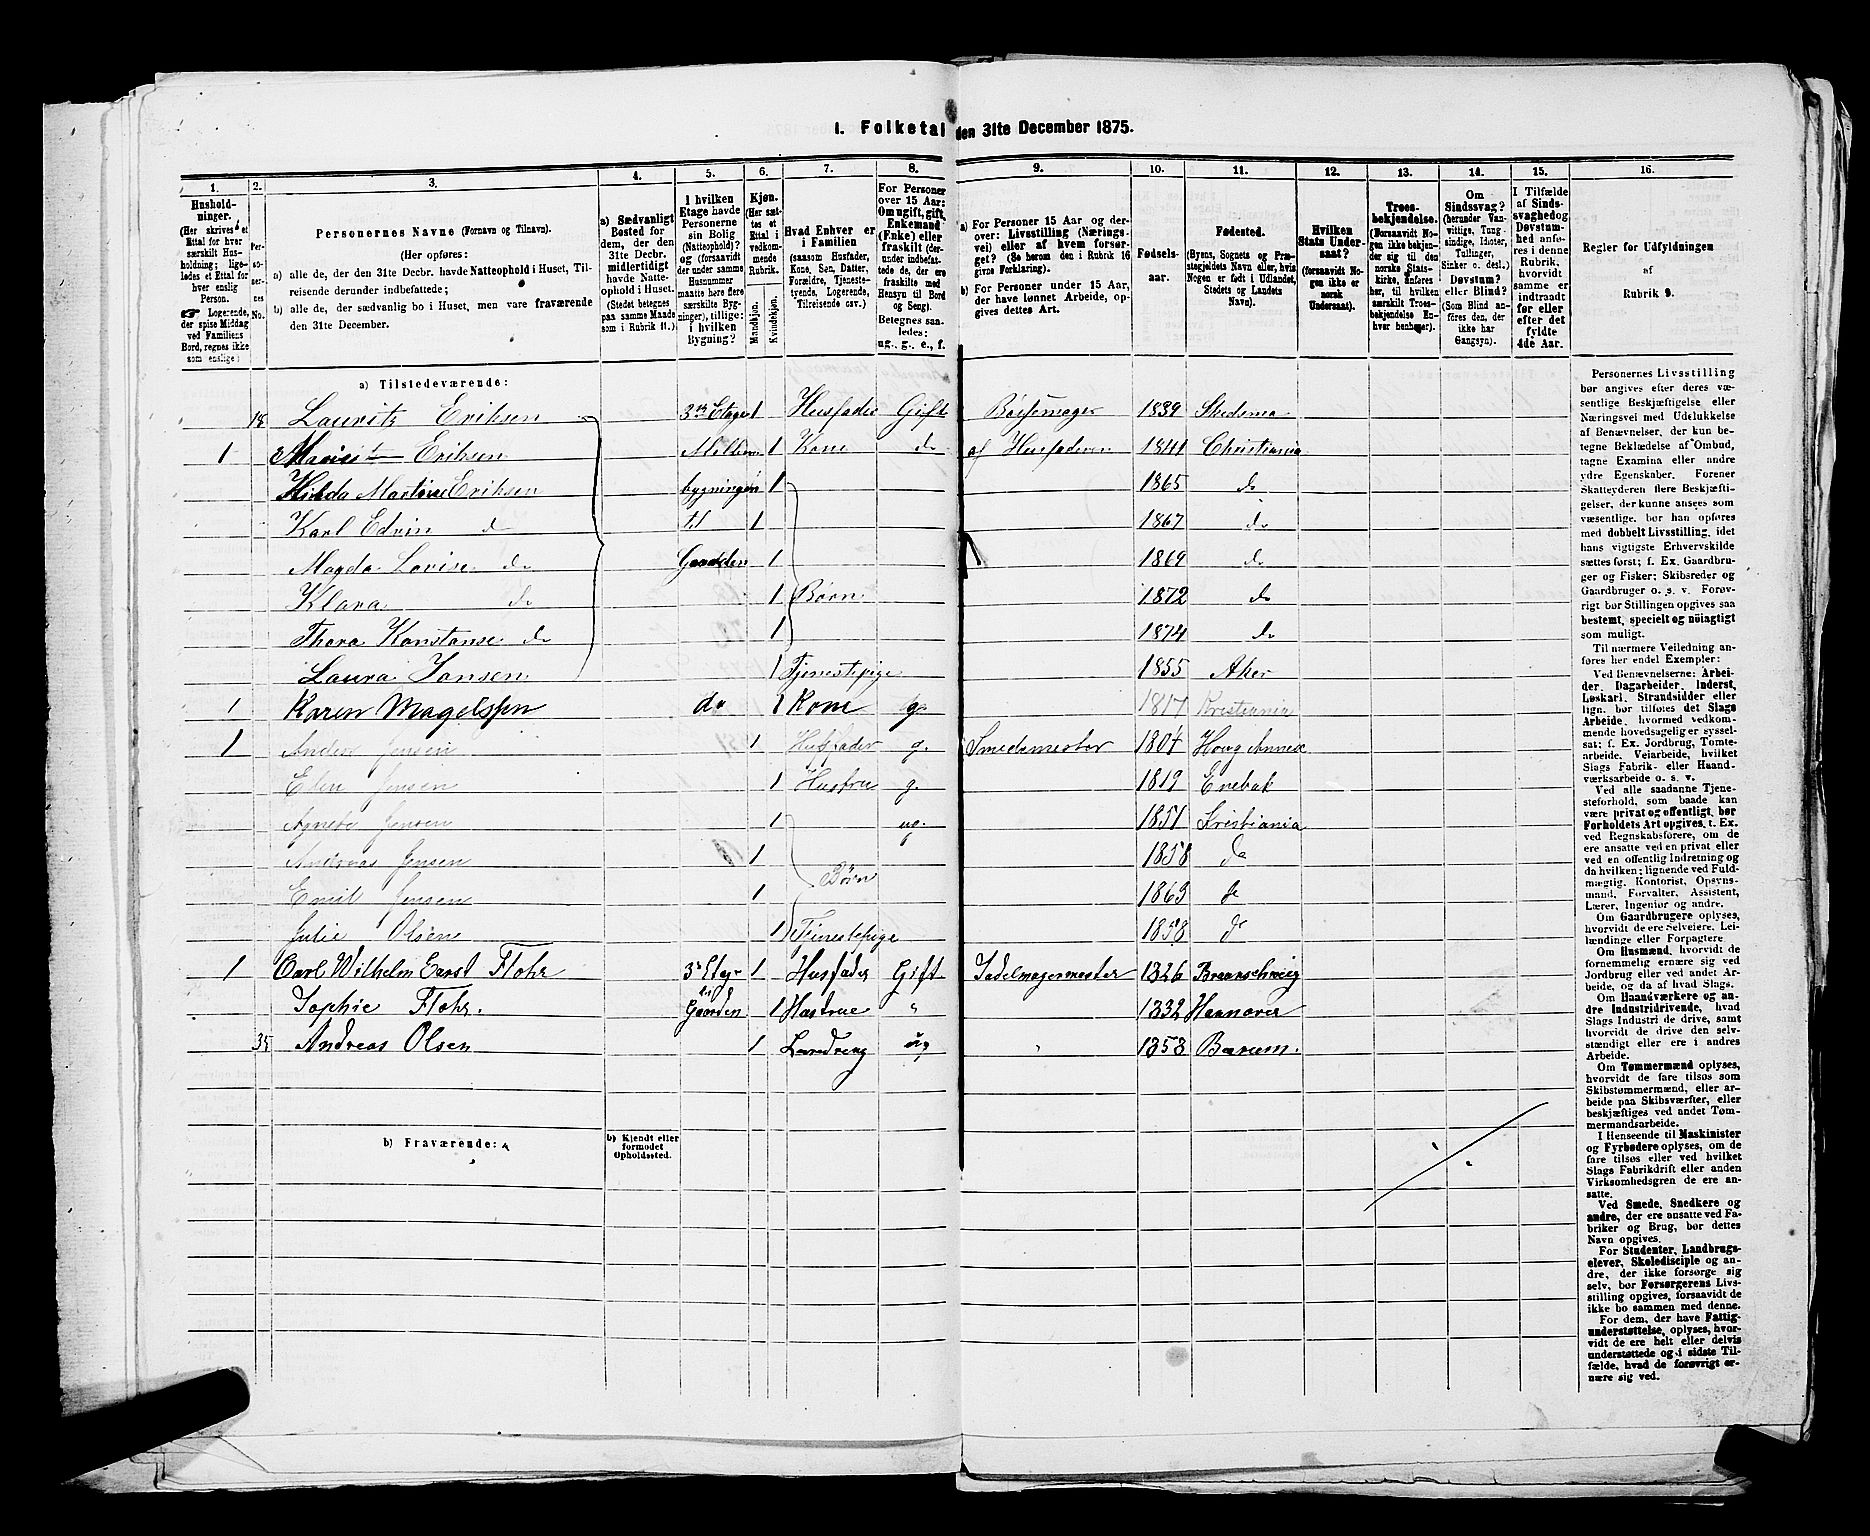 1. Folketal den 31te December 1875.
1. 2. 3. 4. 5. 6. 7. 8. 9. 10. 11. 12. 13. 14. 15. 16.
Hushold-
ninger.
(Her skrives et
Ettal for hver
særskilt Hus-
holdning; lige-
ledes et Ettal for
hver enslig
Person.
☞ Logerende,
der spise Middag
ved Familiens
Bord, regnes ikke
som enslige:
Per-
so-
ner-
nes
No.
Personernes Navne (Fornavn og Tilnavn).
(Her opføres:
a) alle de, der den 31te Decbr. havde Natteophold i Huset, Til-
reisende derunder indbefattede;
b) alle de, der sædvanlig bo i Huset, men vare fraværende
den 31te December.
a) Sædvanligt
Bosted for
dem, der den
31te Decbr.
midlertidigt
havde Natte-
ophold i Huset.
(Stedet betegnes
paa samme Maade
som i Rubrik 11.)
I hvilken
Etage havde
Personerne
sin Bolig
(Natteophold)?
og (forsaavidt
der under samme
Husnummer
maatte høre flere
særskilte Byg-
ninger), tillige:
i hvilken
Bygning?
Kjøn.
(Her sæt-
tes et
Ettal i
vedkom-
mende
Rubrik.
Mandkjøn.
Kvindekjøn.
Hvad Enhver er
i Familien
(saasom Husfader,
Kone, Søn, Datter,
Forældre, Tjeneste-
tyende, Logerende,
Tilreisende osv.)
For Personer
over 15 Aar:
Om ugift, gift,
Enkemand
(Enke) eller
fraskilt (der-
under indbefat-
tede de, der ere
fraskilte med
Hensyn til Bord
og Seng).
Betegnes saa-
ledes:
ug., g., e., f.
a) For Personer 15 Aar og der-
over: Livsstilling (Nærings-
vei) eller af hvem forsør-
get? (Se herom den i Rubrik 16
givne Forklaring).
b) For Personer under 15 Aar,
der have lønnet Arbeide, op-
gives dettes Art.
Fødsels-
aar.
Fødested.
(Byens, Sognets og Præ-
stegjeldets Navn eller, hvis
Nogen er født i Udlandet,
Stedets og Landets
Navn).
Hvilken
Stats Under-
saat?
(forsaavidt No-
gen ikke er
norsk
Undersaat).
Troes-
bekjendelse.
(Forsaavidt No-
gen ikke bekjen-
der sig til den
norske Stats-
kirke, anføres
her, til hvilken
særskilt Troes-
bekjendelse En-
hver benhører).
Om
Sindssvag?
(herunder Van-
vittige, Tung-
sindige, Idioter,
Tullinger,
Sinker o. desl.)
Døvstum?
eller Blind?
(Som Blind an-
føres den, der
ikke har
Gangsyn).
I Tilfælde
af Sinds-
svaghed og
Døvstum-
hed anfø-
res i denne
Rubrik,
hvorvidt
samme er
indtraadt
før eller
efter det
fyldte
4de Aar.
Regler for Udfyldningen
af
Rubrik 9.
a) Tilstedeværende:
18 Lauritz Eriksen 3die Etage 1 Husfader Gift Bøssemager 1839 Skedsmo
1 Eriksen Mellem 1 Kone do af Husfaderen 1841 Christiania
Hilda Martine Eriksen bygningen 1 1865 do
Karl Edvin do til 1 1867 do
Magda Lovise do Gaarden 1 1869 do
Klara do 1 Børn 1872 do
Thora Konstanse do 1 1874 do
Laura Jansen 1 Tjenestepige 1855 Aker
1 Karen Magelssen do 1 Kone g. 1817 Kristiania
1 Anders Jensen 1 Husfader g. Smedemester 1804 Houg Annex
Elen Jensen 1 Hustru g. 1819 Enebak
Agnete Jensen 1 ug. 1851 Kristiania
Andreas Jensen 1 1858 do
Emil Jensen 1 Børn 1863 do
Julie Olsen 1 Tjenestepige 1858 do
1 Carl Wilhelm Ernst Flohr 3die Etage 1 Husfader Gift Sadelmagermester 1826 Braunschweig
Sophie Flohr. Gaarden 1 Hustrue " 1832 Hannover
35 Andreas Olsen 1 Læredreng ug " 1858 Bærum.
b) Fraværende:
b) Kjendt eller
formodet
Opholdssted.
Personernes Livsstilling
bør angives efter deres væ-
sentlige Beskjæftigelse eller
Næringsvei med Udelukkelse
af Benævnelser, der kun be-
tegne Beklædelse af Ombud,
tagne Examina eller andre
ydre Egenskaber. Forener
Skatteyderen flere Beskjæfti-
gelser, der kunne ansees som
væsentlige, bør han opføres
med dobbelt Livsstilling, idet
hans vigtigste Erhvervskilde
sættes først; f. Ex. Gaardbru-
ger og Fisker; Skibsreder og
Gaardbruger o. s. v. Forøv-
rigt bør Stillingen opgives saa
bestemt, specielt og nøiagtigt
som muligt.
Til nærmere Veiledning an-
føres her endel Exempler:
Ved Benævnelserne: Arbei-
der, Dagarbeider, Inderst,
Løskarl, Strandsidder eller
lign. bør tilføies det Slags
Arbeide, hvormed vedkom-
mende hovedsagelig er syssel-
sat; f. Ex. Jordbrug, Tomte-
arbeide, Veiarbeide, hvilket
Slags Fabrik- eller Haand-
værksarbeide o. s. v.
Ved alle saadanne Tjene-
steforhold, som baade kan
være privat og offentligt, bør
Forholdets Art opgives, t. Ex.
ved Regnskabsførere, om de
ere ansatte ved en privat eller
ved en offentlig Indretning og
da hvilken; lignende ved Fuld-
mægtig, Kontorist, Opsyns-
mand, Forvalter, Assistent,
Lærer, Ingeniør og andre.
Om Gaardbrugere oplyses,
hvorvidt de ere Selveiere, Lei-
lændinge eller Forpagtere
Om Husmænd, hvorvidt de
fornemmelig ernære sig ved
Jordbrug eller ved andet Ar-
beide, og da af hvad Slags.
Om Haandværkere og an-
dre Industridrivende, hvad
Slags Industri de drive, samt
hvorvidt de drive den selv-
stændigt eller ere i andres
Arbeide.
Om Tømmermænd oplyses,
hvorvidt de fare tilsøs som
Skibstømmermænd, eller ar-
beide paa Skibsværfter, eller
beskjæftiges ved andet Tøm-
mermandsarbeide.
I Henseende til Maskinister
og Fyrbødere oplyses, om de
fare tilsøs eller ved hvilket
Slags Fabrikdrift eller anden
Virksomhedsgren de ere an-
satte.
Ved Smede, Snedkere og
andre, der ere ansatte ved Fa-
briker og Brug, bør dettes
Navn opgives.
For Studenter, Landbrugs-
elever, Skoledisciple og an-
dre, der ikke forsørge sig
selv, bør Forsørgerens Livs-
stilling opgives, forsaavidt de
ikke bo sammen med denne.
For dem, der have Fattig-
understøttelse, oplyses, hvor-
vidt de ere helt eller delvis
understøttede og i sidste Til-
fælde, hvad de forøvrigt er-
nære sig ved.